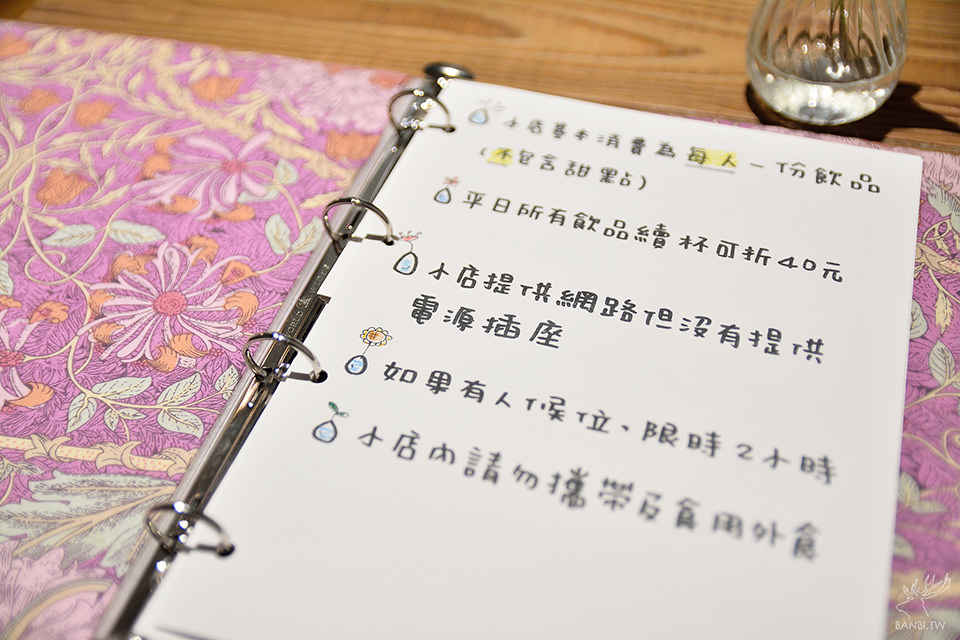 小店基本消費為每人一份飲品
(不包含甜點)
平日所有飲品續杯可折40元
小店提供網路但沒有提供
電源插座
如果有人候位、限時2小時
小店內請勿攜帶及食用外食
BANBI.TW